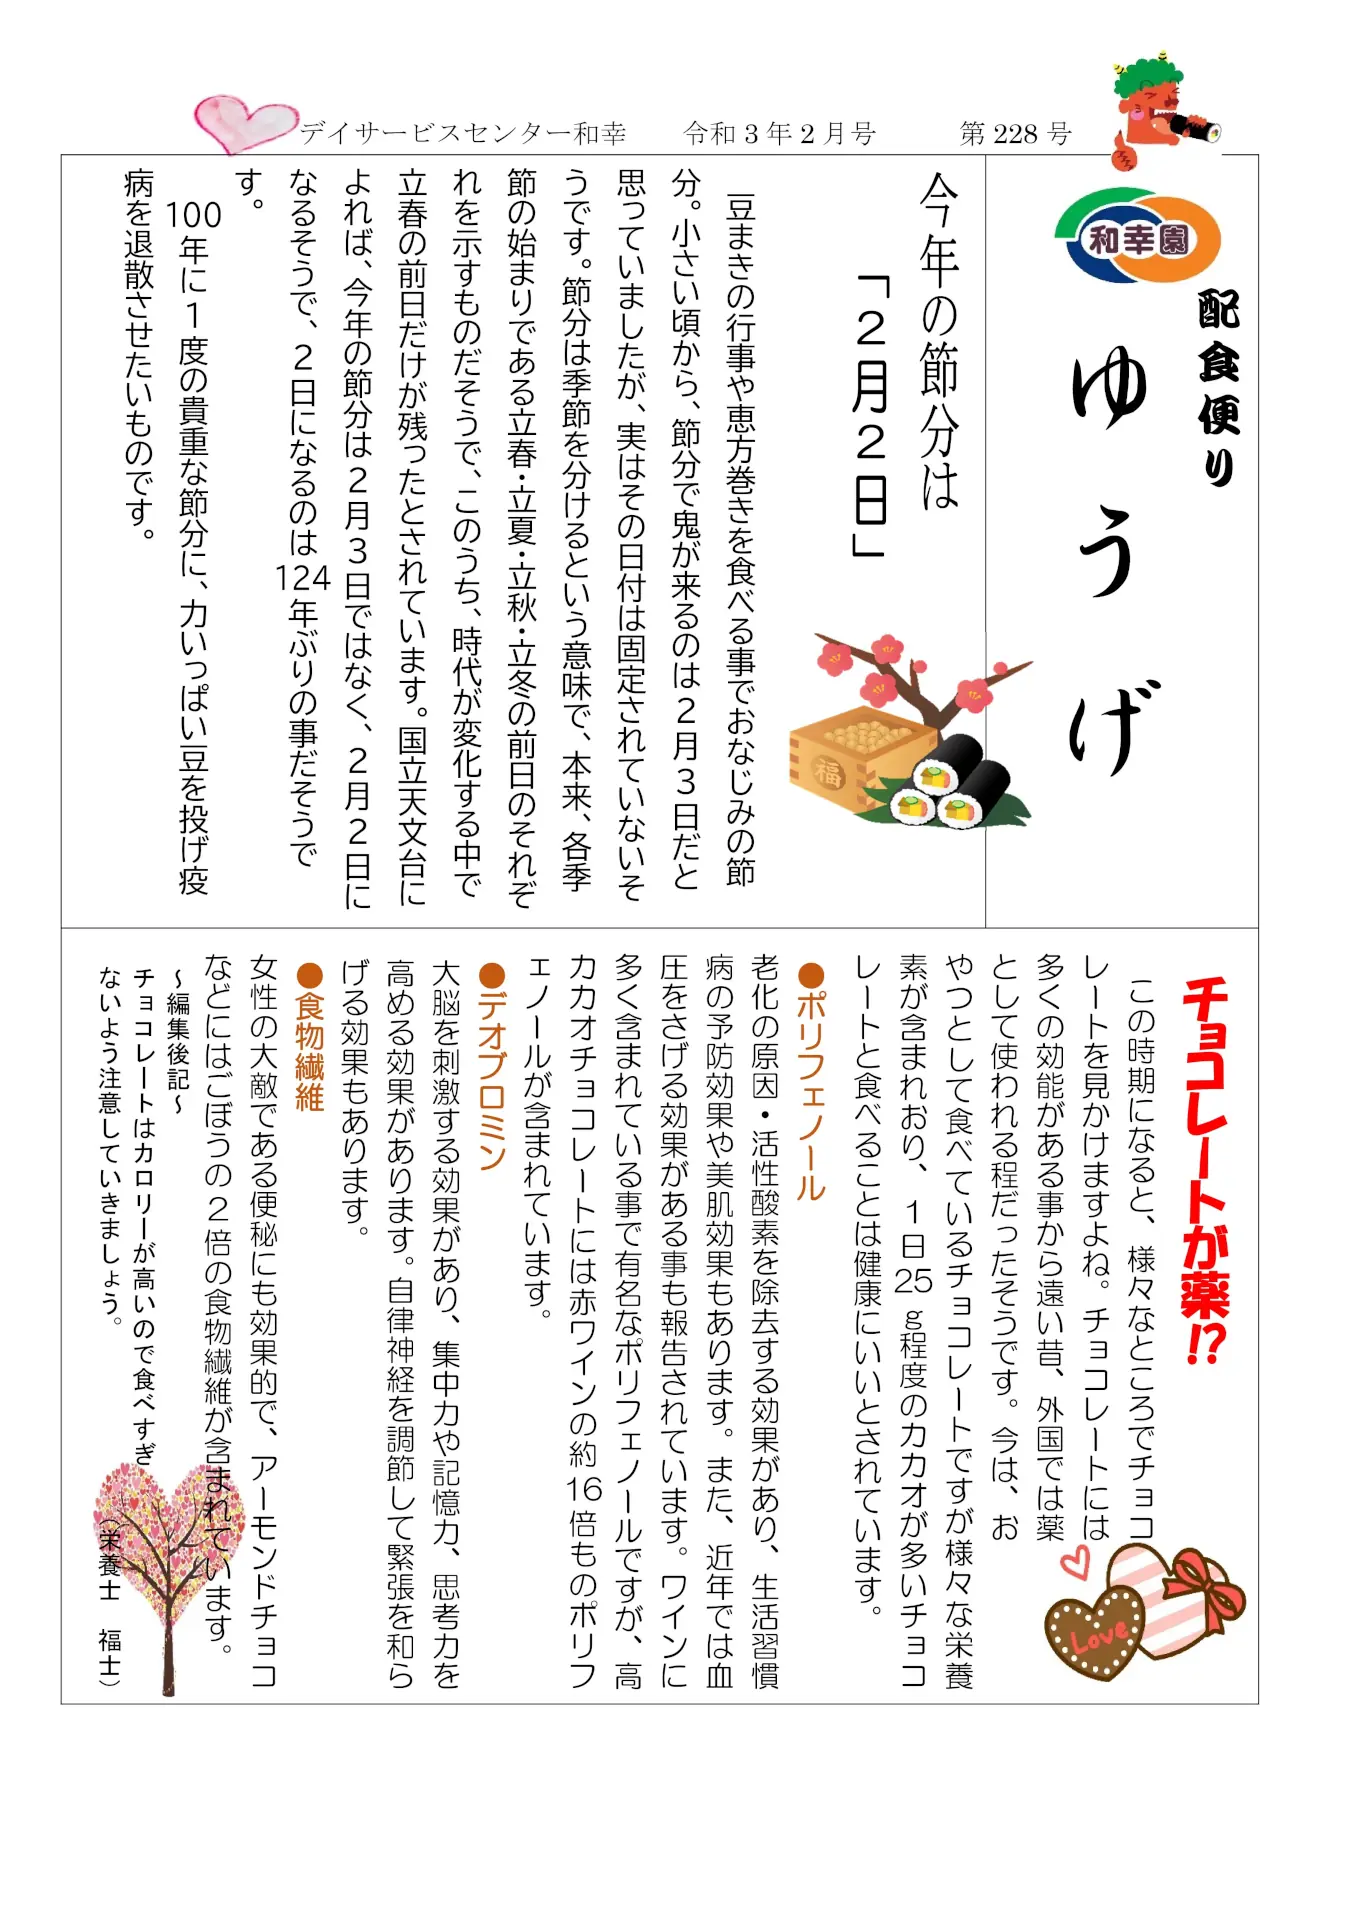 デイサービスセンター和幸　令和3年2月号　第228号
和幸園
配食便り
ゆうげ
今年の節分は
「２月２日」
豆まきの行事や恵方巻きを食べる事でおなじみの節
分。小さい頃から、節分で鬼が来るのは２月３日だと
思っていましたが、実はその日付は固定されていないそ
うです。節分は季節を分けるという意味で、本来、各季
節の始まりである立春・立夏・立秋・立冬の前日のそれぞ
れを示すものだそうで、このうち、時代が変化する中で
立春の前日だけが残ったとされています。国立天文台に
よれば、今年の節分は２月３日ではなく、２月２日に
なるそうで、２日になるのは124年ぶりの事だそうで
す。
100年に１度の貴重な節分に、力いっぱい豆を投げ疫
病を退散させたいものです。
福
チョコレートが薬!?
この時期になると、様々なところでチョコ
レートを見かけますよね。チョコレートには
多くの効能がある事から遠い昔、外国では薬
として使われる程だったそうです。今は、お
やつとして食べているチョコレートですが様々な栄養
素が含まれおり、１日25ｇ程度のカカオが多いチョコ
レートと食べることは健康にいいとされています。
●ポリフェノール
老化の原因・活性酸素を除去する効果があり、生活習慣
病の予防効果や美肌効果もあります。また、近年では血
圧をさげる効果がある事も報告されています。ワインに
多く含まれている事で有名なポリフェノールですが、高
カカオチョコレートには赤ワインの約16倍ものポリフ
ェノールが含まれています。
●デオブロミン
大脳を刺激する効果があり、集中力や記憶力、思考力を
高める効果があります。自律神経を調節して緊張を和ら
げる効果もあります。
●食物繊維
女性の大敵である便秘にも効果的で、アーモンドチョコ
などにはごぼうの２倍の食物繊維が含まれています。
～編集後記～
チョコレートはカロリーが高いので食べすぎ
ないよう注意していきましょう。
（栄養士　福士）
Love